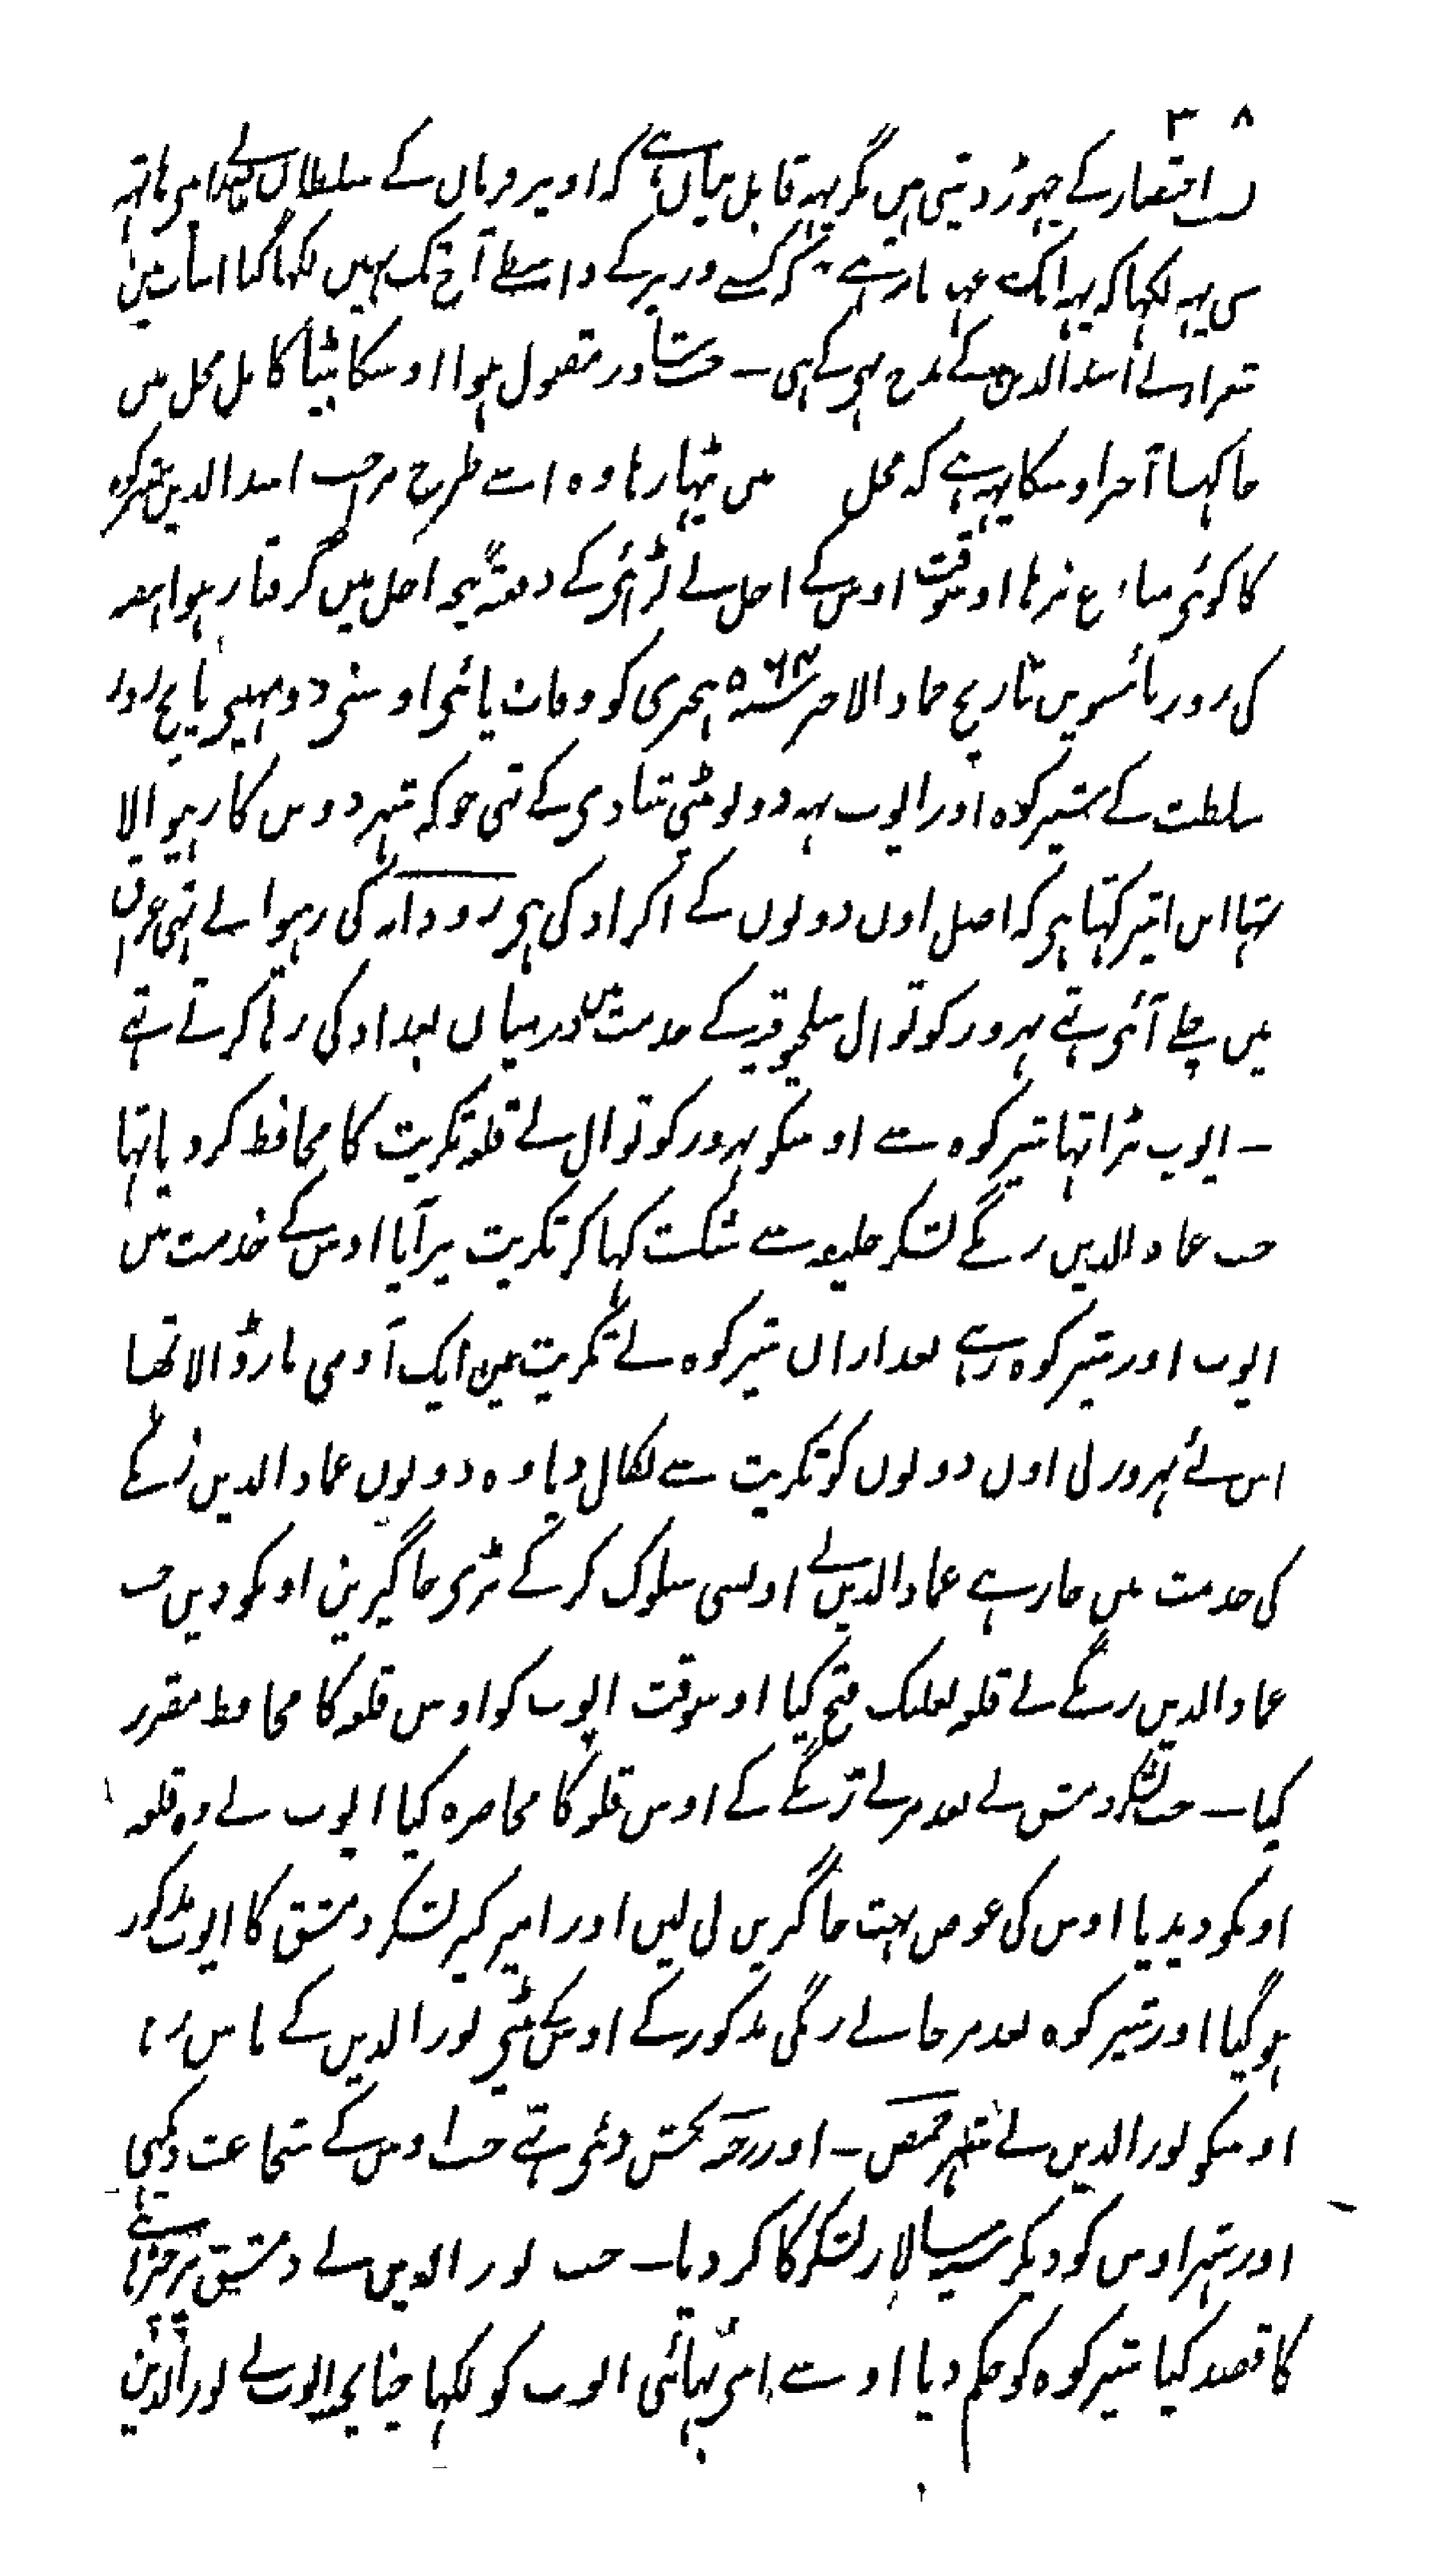 ۳۸
اختصار کے چہوڑ دیتی ہیں مگر یہہ قابل بیاں ہے کہ اوپر فرماں کے سلطاں لے اپنی ہاتہہ
سی یہہ لکہا کہ یہہ ایک عہد نامہ ہے کہ کسے وزیر کے واسطے آج تک نہیں لکہا گیا اسباب میں
شعرا لے اسد الدین کے مدح بہی کے ہی ـ جب شاور مقبول ہوا اوسکا بیٹا کامل محل میں
جا گہسا آخر اوسکا یہہ ہے کہ محل میں بیٹہا رہا وہ اسے طرح پر جب اسد الدین شیرکوہ
کا کوئی منازع نرہا اوسوقت اوس کے اجل لے لڑائی کے دفعتہً پنجہ اجل میں گرفتار ہوا ہفتہ
کی روز بائسویں تاریخ جمادالاخر سنہ ۵۶۴ ہجری کو وفات پائی اوسنی دو مہینی پانچ روز
سلطنت کے شیرکوہ اور ایوب یہہ دونو بیٹی شادی کے تہی جو کہ شہر دوین کا رہنیوالا
تہا ابن اثیر کہتا ہی کہ اصل اون دونوں کے اکراد کی ہی روادیہ کی رہنوالے تہی عراق
میں چلے آئی تہے بہروز کوتوال سلجوقیہ کے خدمت میں درمیاں بغداد کی رہا کرتے تہے
ـ ایوب بڑا تہا شیرکوہ سے اوسکو بہروز کوتوال لے قلعہ تکریت کا محافظ کر دیا تہا
جب عماد الدیں زنگے لشکر خلیفہ سے شکست کہا کر تکریت پر آیا اوس کے خدمت میں
ایوب اور شیرکوہ رہے بعد ازاں شیرکوہ لے تکریت میں ایک آدمی مار ڈالا تھا
اس لئے بہروز لی اون دونوں کو تکریت سے نکال دیا وہ دونوں عماد الدین زنگے
کی خدمت میں جا رہے عماد الدین لے اونسی سلوک کر کے بڑی جاگیرین اونکو دیں جب
عماد الدیں زنگے لے قلعہ بعلبک فتح کیا اوسوقت ایوب کو اوس قلعہ کا محافظ مقرر
کیا ـ جب لشکر دمشق لے بعد مرلے زنگے کے اوس قلعہ کا محاصرہ کیا ایوب لے وہ قلعہ
اونکو دیدیا اوس کی عوض بہت جاگیریں لی لیں اور امیر کبیر لشکر دمشق کا ایوب مذکور
ہوگیا اور شیرکوہ بعد مر جالے زنگی مذکور کے اوس کے بیٹی نور الدیں کے پاس رہا
اوسکو نور الدیں لے شہر حمص ـ اور رحبہ بخش دئی تہے جب اوس کے شجاعت دیکہی
اور شہر اوس کو دیکر سپہ سالار لشکر کا کر دیا ـ جب نور الدیں لے دمشق پر چڑہائے
کا قصد کیا شیرکوہ کو حکم دیا اوسے اپنی بہائی ایوب کو لکہا چنانچہ ایوب لے نور الدین